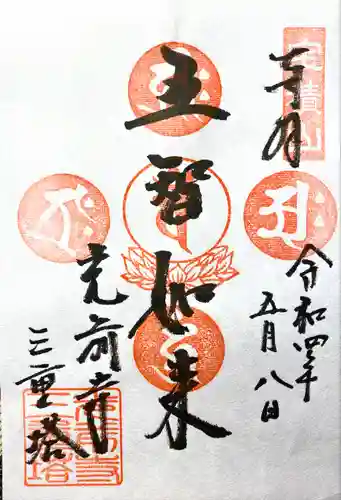 奉拝
宝積山
令和四年
五月八日
五智如来
光前寺
三重塔